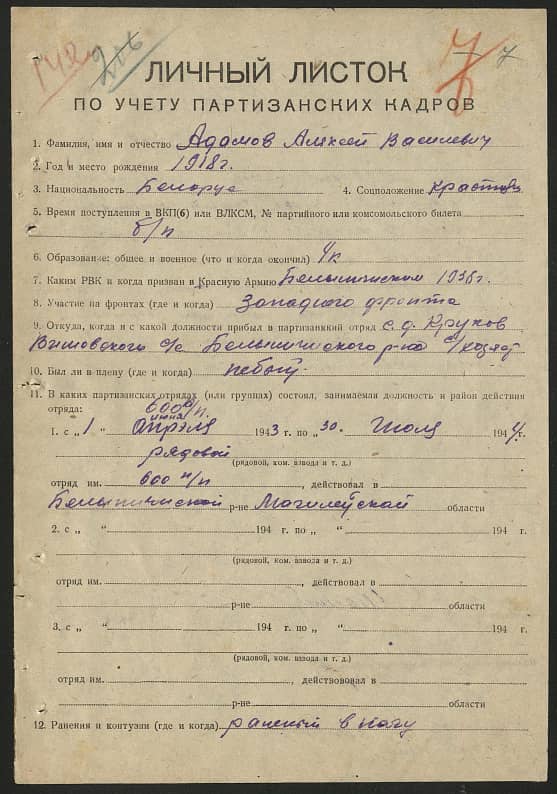 142 206 7 7
ЛИЧНЫЙ ЛИСТОК
ПО УЧЕТУ ПАРТИЗАНСКИХ КАДРОВ
1. Фамилия, имя и отчество Адамов Алексей Василевич
2. Год и место рождения 1918 г.
3. Национальность Белорус 4. Соцположение
5. Время поступления в ВКП(б) или ВЛКСМ, № партийного или комсомольского билета
б/п
6. Образование: общее и военное (что и когда окончил) 4 к
7. Каким РВК и когда призван в Красную Армию Белыничском 1938 г.
8. Участие на фронтах (где и когда) Западного фронта
9. Откуда, когда и с какой должности прибыл в партизанкий отряд с. д. Крухов
с/с Белыничского р-на
10. Был ли в плену (где и когда) небыл
11. В каких партизанских отрядах (или группах) состоял, занимаемая должность и район действия
отряда: 600 п.
июня
1. с „ 1 “ апрэля 1943 г. по „ 30. Июля 1944 г.
рядовой
(рядовой, ком. взвода и т. д.)
отряд им. 600 п/п , действовал в
Белыничской р-не Могилевской области
2. с „ “ 194 г. по „ “ 194 г.
(рядовой, ком. взвода и т. д.)
отряд им. , действовал в
р-не области
3. с „ “ 194 г. по „ “ 194 г.
(рядовой, ком. взвода и т. д.)
отряд им. , действовавал в
р-не области
12. Ранения и контузии (где и когда) раненый в ногу